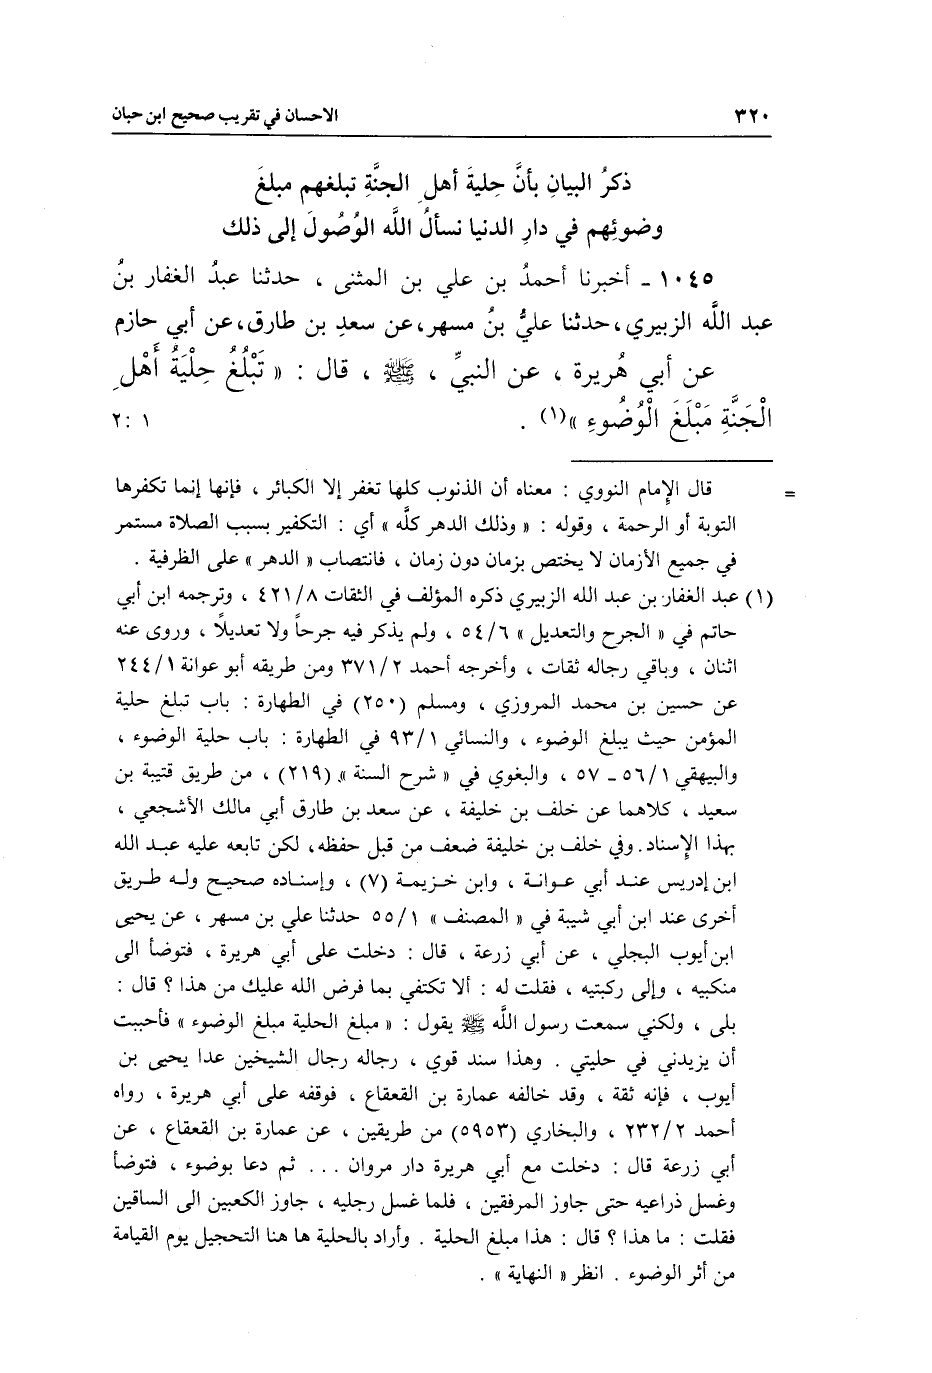 ٣٢٠ الاحسان في تقريب صحيح ابن حبان
ذكرُ البيانِ بأنَّ حِليةَ أهلِ الجنَّةِ تبلغهم مبلغَ
وضوئِهم في دارِ الدنيا نسألُ اللَّه الوُصُولَ إلى ذلك
١٠٤٥ - أخبرنا أحمدُ بن علي بن المثنى ، حدثنا عبدُ الغفار بنُ
عبد اللَّه الزبيري، حدثنا عليُّ بنُ مسهر، عن سعدِ بن طارق، عن أبي حازم
عن أبي هُريرة ، عن النبيِّ ، ﷺ ، قال : « تَبْلُغُ حِلْيَةُ أَهْلِ
الْجَنَّةِ مَبْلَغَ الْوُضُوءِ »(١) . ١ : ٢
= قال الإمام النووي : معناه أن الذنوب كلها تغفر إلا الكبائر ، فإنها إنما تكفرها
التوبة أو الرحمة ، وقوله : « وذلك الدهر كلَّه » أي : التكفير بسبب الصلاة مستمر
في جميع الأزمان لا يختص بزمان دون زمان ، فانتصاب « الدهر » على الظرفية .
(١) عبد الغفار بن عبد الله الزبيري ذكره المؤلف في الثقات ٤٢١/٨ ، وترجمه ابن أبي
حاتم في « الجرح والتعديل » ٥٤/٦ ، ولم يذكر فيه جرحاً ولا تعديلاً ، وروى عنه
اثنان ، وباقي رجاله ثقات ، وأخرجه أحمد ٣٧١/٢ ومن طريقه أبو عوانة ٢٤٤/١
عن حسين بن محمد المروزي ، ومسلم (٢٥٠) في الطهارة : باب تبلغ حلية
المؤمن حيث يبلغ الوضوء ، والنسائي ٩٣/١ في الطهارة : باب حلية الوضوء ،
والبيهقي ٥٦/١ - ٥٧ ، والبغوي في « شرح السنة » (٢١٩) ، من طريق قتيبة بن
سعيد ، كلاهما عن خلف بن خليفة ، عن سعد بن طارق أبي مالك الأشجعي ،
بهذا الإسناد. وفي خلف بن خليفة ضعف من قبل حفظه، لكن تابعه عليه عبد الله
ابن إدريس عند أبي عوانة ، وابن خزيمة (٧) ، وإسناده صحيح وله طريق
أخرى عند ابن أبي شيبة في « المصنف » ٥٥/١ حدثنا علي بن مسهر ، عن يحيى
ابن أيوب البجلي ، عن أبي زرعة ، قال : دخلت على أبي هريرة ، فتوضأ الى
منكبيه ، وإلى ركبتيه ، فقلت له : ألا تكتفي بما فرض الله عليك من هذا ؟ قال :
بلى ، ولكني سمعت رسول اللَّه ﷺ يقول : « مبلغ الحلية مبلغ الوضوء » فأحببت
أن يزيدني في حليتي . وهذا سند قوي ، رجاله رجال الشيخين عدا يحيى بن
أيوب ، فإنه ثقة ، وقد خالفه عمارة بن القعقاع ، فوقفه على أبي هريرة ، رواه
أحمد ٢٣٢/٢ ، والبخاري (٥٩٥٣) من طريقين ، عن عمارة بن القعقاع ، عن
أبي زرعة قال : دخلت مع أبي هريرة دار مروان ... ثم دعا بوضوء ، فتوضأ
وغسل ذراعيه حتى جاوز المرفقين ، فلما غسل رجليه ، جاوز الكعبين الى الساقين
فقلت : ما هذا ؟ قال : هذا مبلغ الحلية . وأراد بالحلية ها هنا التحجيل يوم القيامة
من أثر الوضوء . انظر « النهاية » .